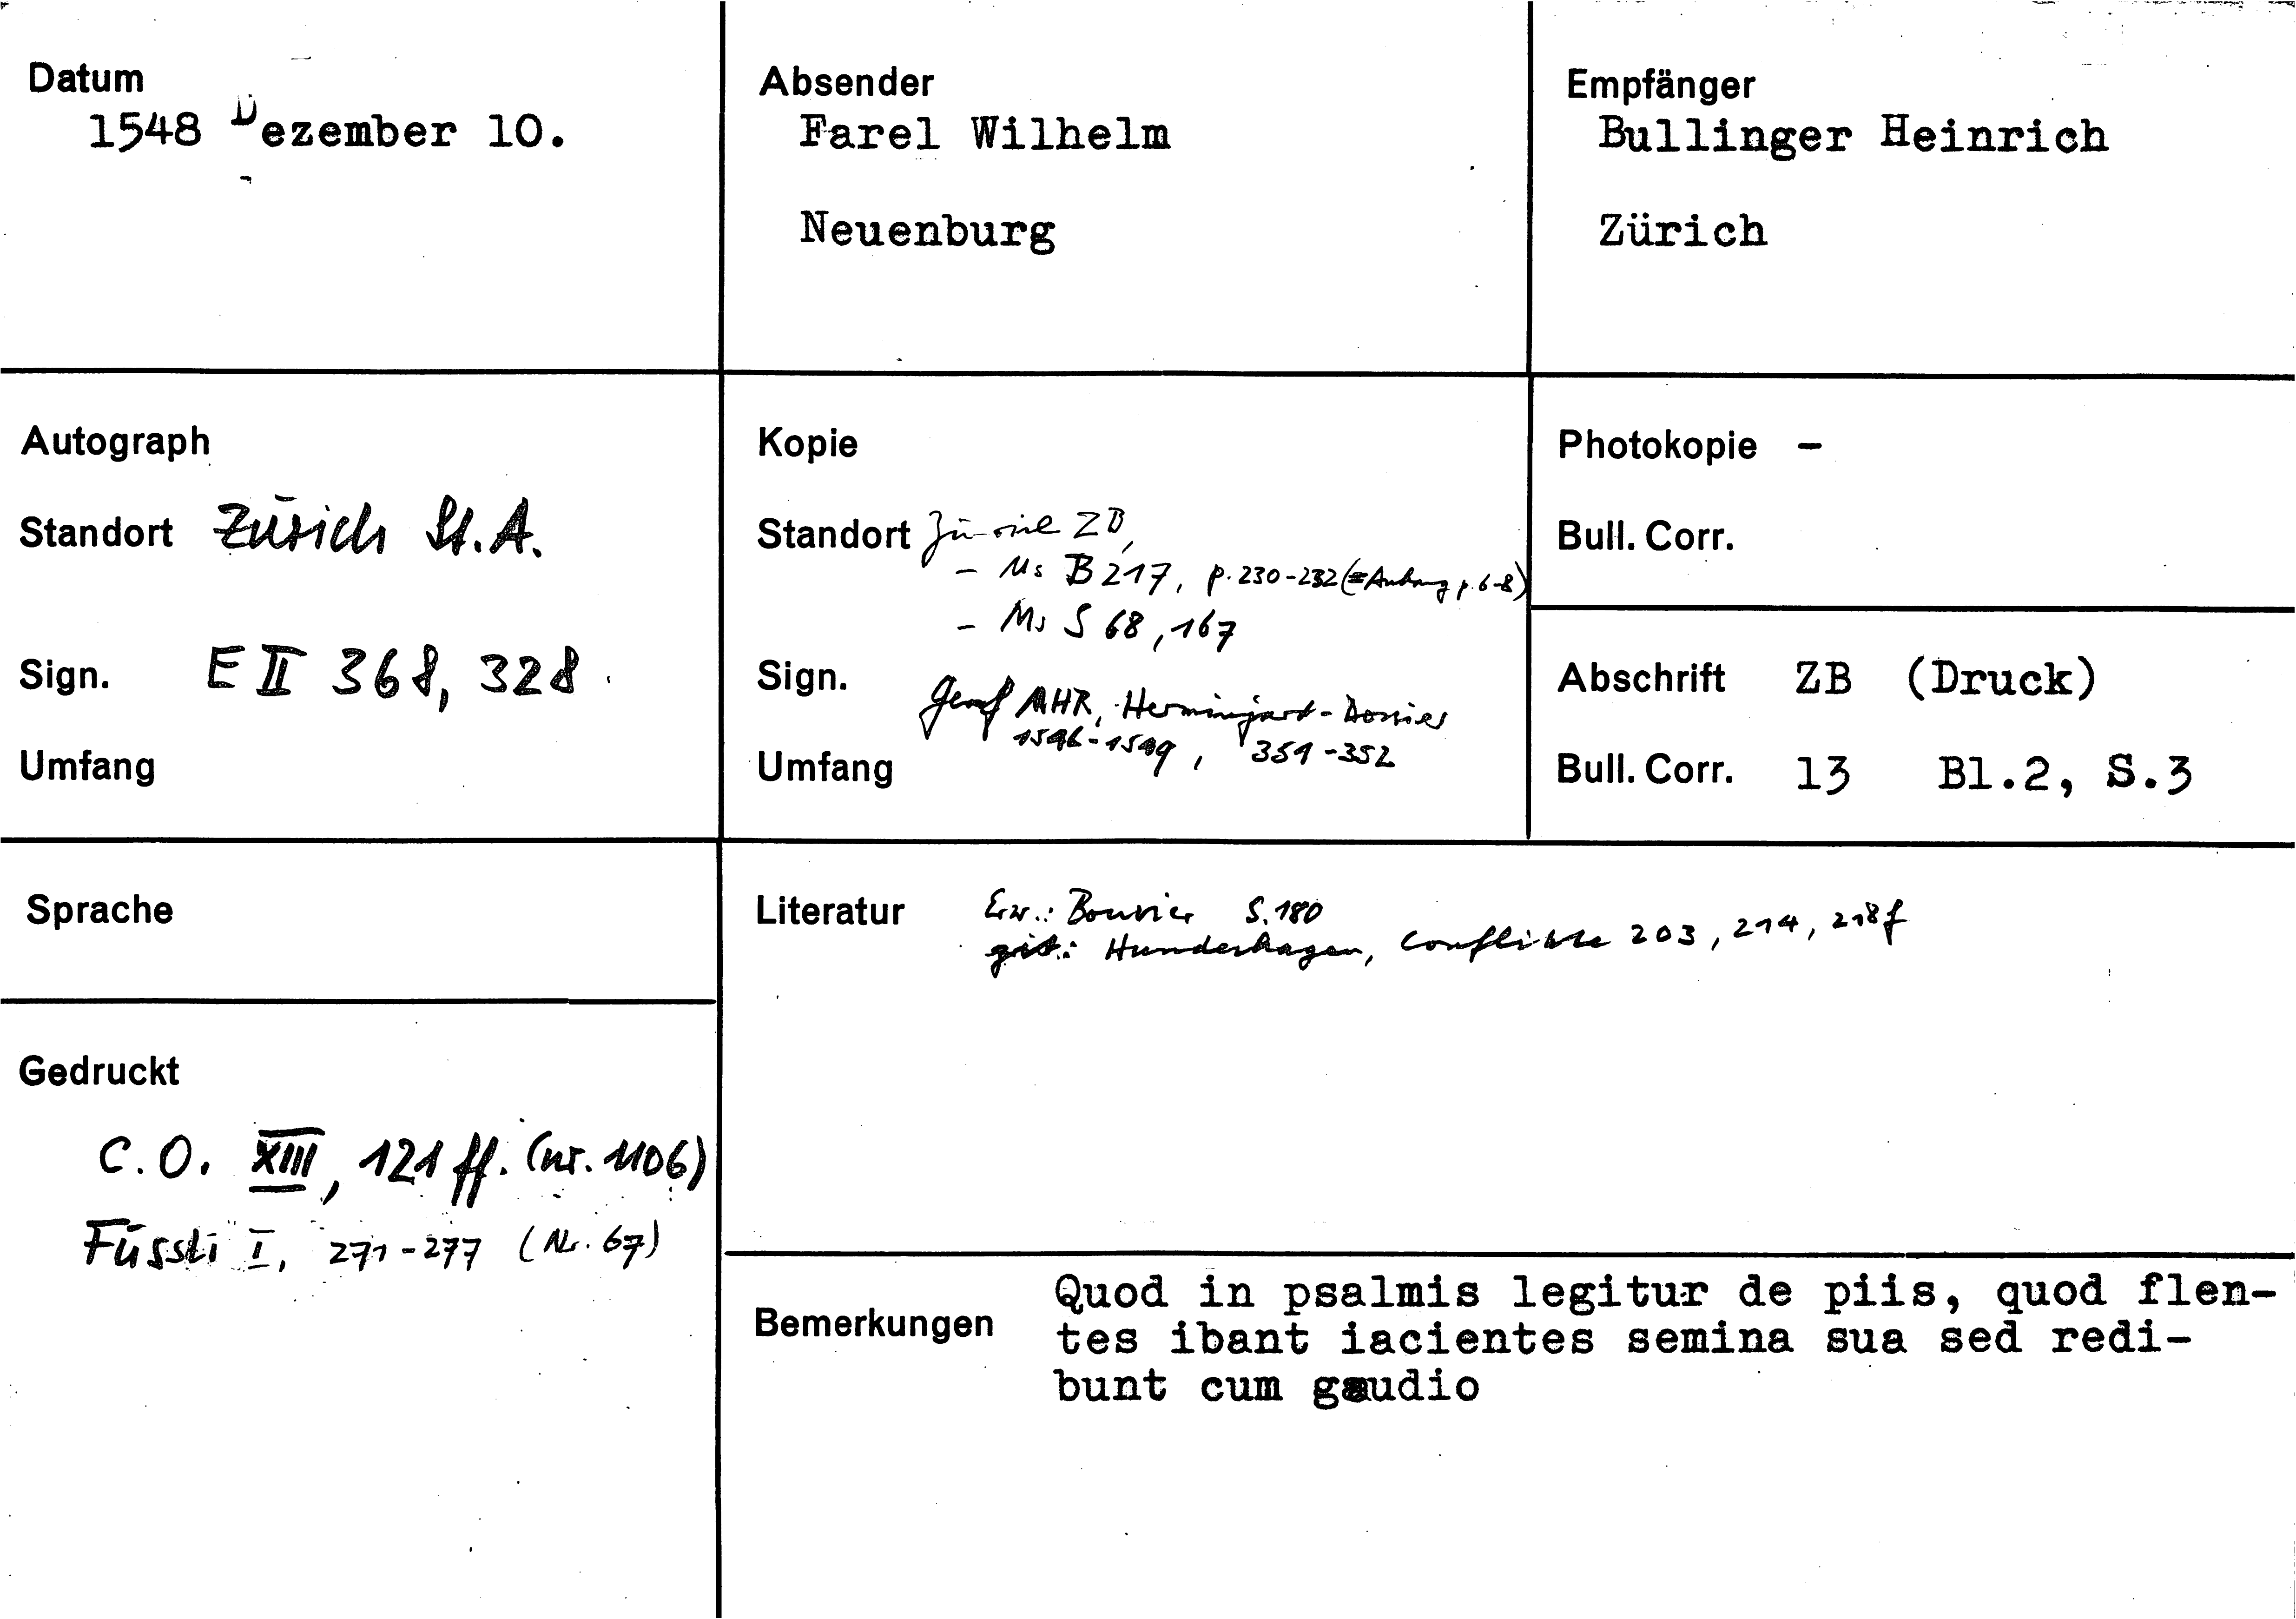 Datum
1548 Dezember 10.
Absender
Farel Wilhelm
Neuenburg
Empfänger
Bullinger Heinrich
Zürich
Autograph
Standort Zürich St.A.
Sign. E II 368, 328
Umfang
Kopie
Standort Zürich ZB,
- Ms B 217, p. 230-232 (= Anhang p. 6-8)
- Ms S 68, 167
Sign.
Genf MHR, Herminjard-Dossier
1546-1549, 351-352
Umfang
Photokopie -
Bull. Corr.
Abschrift ZB (Druck)
Bull. Corr. 13 Bl.2, S.3
Sprache
Literatur Erw.: Bouvier S. 180
zit.: Hundeshagen, Conflikte 203, 214, 218f
Gedruckt
C.O. XIII, 121 ff. (nr. 1106)
Füssli I, 271-277 (Nr. 67)
Bemerkungen
Quod in psalmis legitur de piis, quod flen-
tes ibant iacientes semina sua sed redi-
bunt cum gaudio